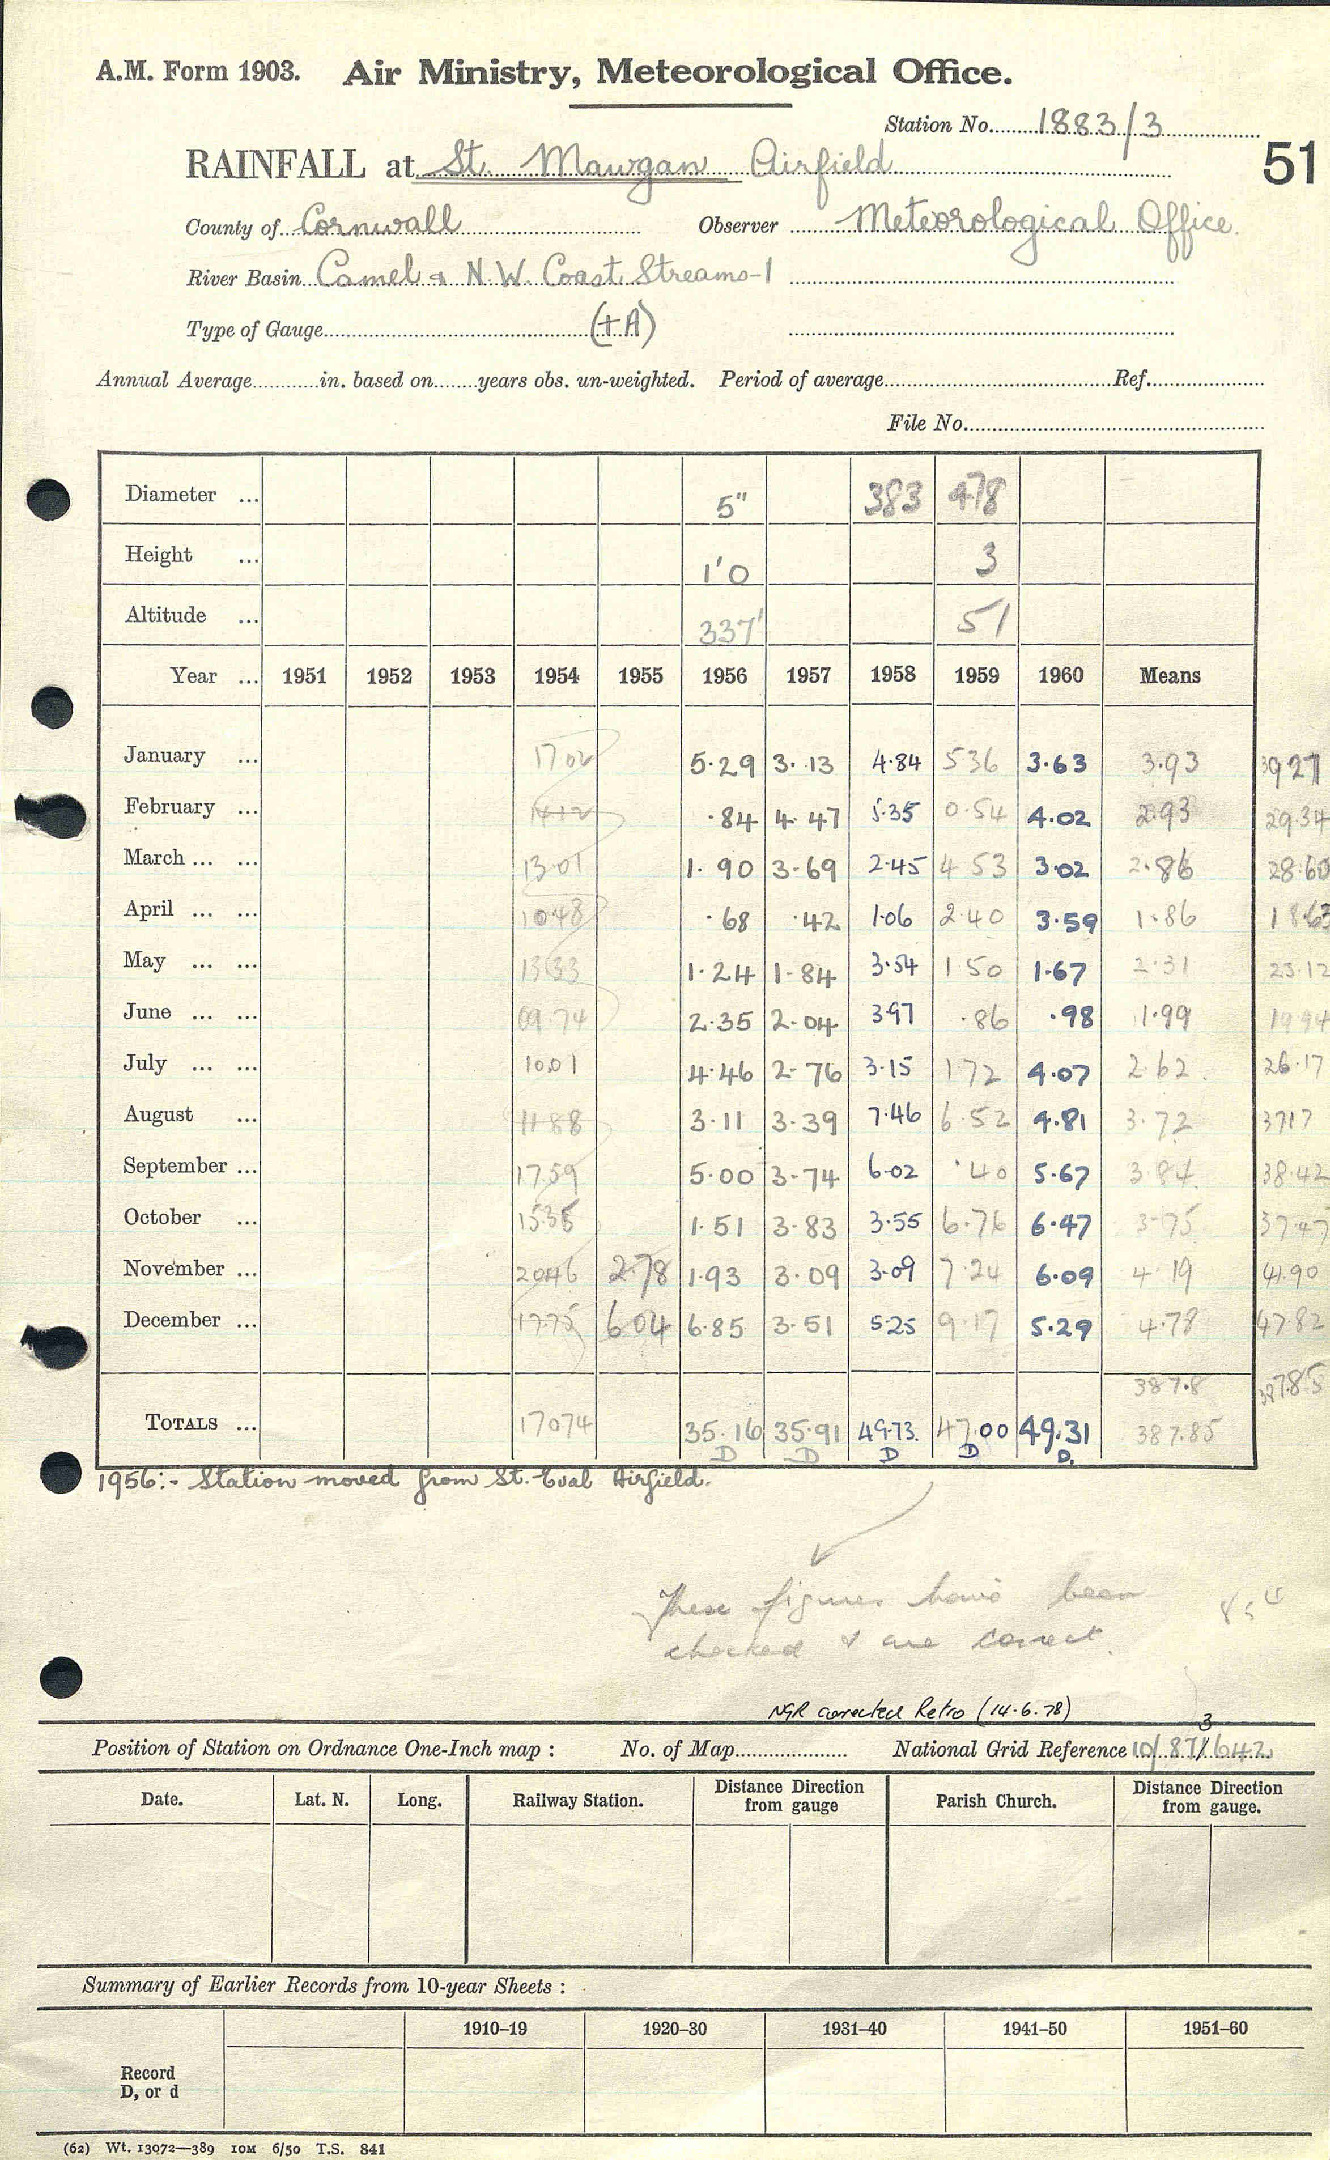 A.M. Form 1903. Air Ministry, Meteorological Office.
Station No. 1883/3
RAINFALL at St. Mawgan Airfield
51
County of Cornwall Observer Meteorological Office.
River Basin Camel & N.W. Coast Streams-1
Type of Gauge (+A)
Annual Average in. based on years obs. un-weighted. Period of average Ref.
File No.
Diameter ... 5" 383 478
Height ... 1'0 3
Altitude ... 337' 51
Year ... 1951 1952 1953 1954 1955 1956 1957 1958 1959 1960 Means
January ... 1702 5.29 3.13 4.84 5 36 3.63 3.93 39 27
February ... 1412 .84 4.47 5.35 0.54 4.02 2.93 29.34
March ... ... 1301 1.90 3.69 2.45 4 53 3.02 2.86 28.60
April ... ... 1048 .68 .42 1.06 2.40 3.59 1.86 18.63
May ... ... 1333 1.24 1.84 3.54 1 50 1.67 2.31 23.12
June ... ... 09.74 2.35 2.04 3.97 .86 .98 1.99 19 94
July ... ... 1001 4.46 2.76 3.15 1 72 4.07 2.62 26.17
August ... 1188 3.11 3.39 7.46 6.52 4.81 3.72 3717
September ... 1759 5.00 3.74 6.02 .40 5.67 3.84 38.42
October ... 1535 1.51 3.83 3.55 6.76 6.47 3.75 37.47
November ... 2046 2.78 1.93 3.09 3.09 7.24 6.09 4.19 41.90
December ... 1775 6.04 6.85 3.51 5.25 9.17 5.29 4.78 47.82
387.8 387.85
TOTALS ... 17074 35.16 35.91 49.73 47.00 49.31 387.85
D D D D D.
1956:- Station moved from St. Eval Airfield.
These figures have been
checked & are correct.
NGR corrected Retro (14.6.78)
3
Position of Station on Ordnance One-Inch map : No. of Map National Grid Reference 10/ 87/ 642
Date. Lat. N. Long. Railway Station. Distance Direction from gauge Parish Church. Distance Direction from gauge.
Summary of Earlier Records from 10-year Sheets :
1910–19 1920–30 1931–40 1941–50 1951–60
Record
D, or d
(62) Wt. 13072—389 10M 6/50 T.S. 841